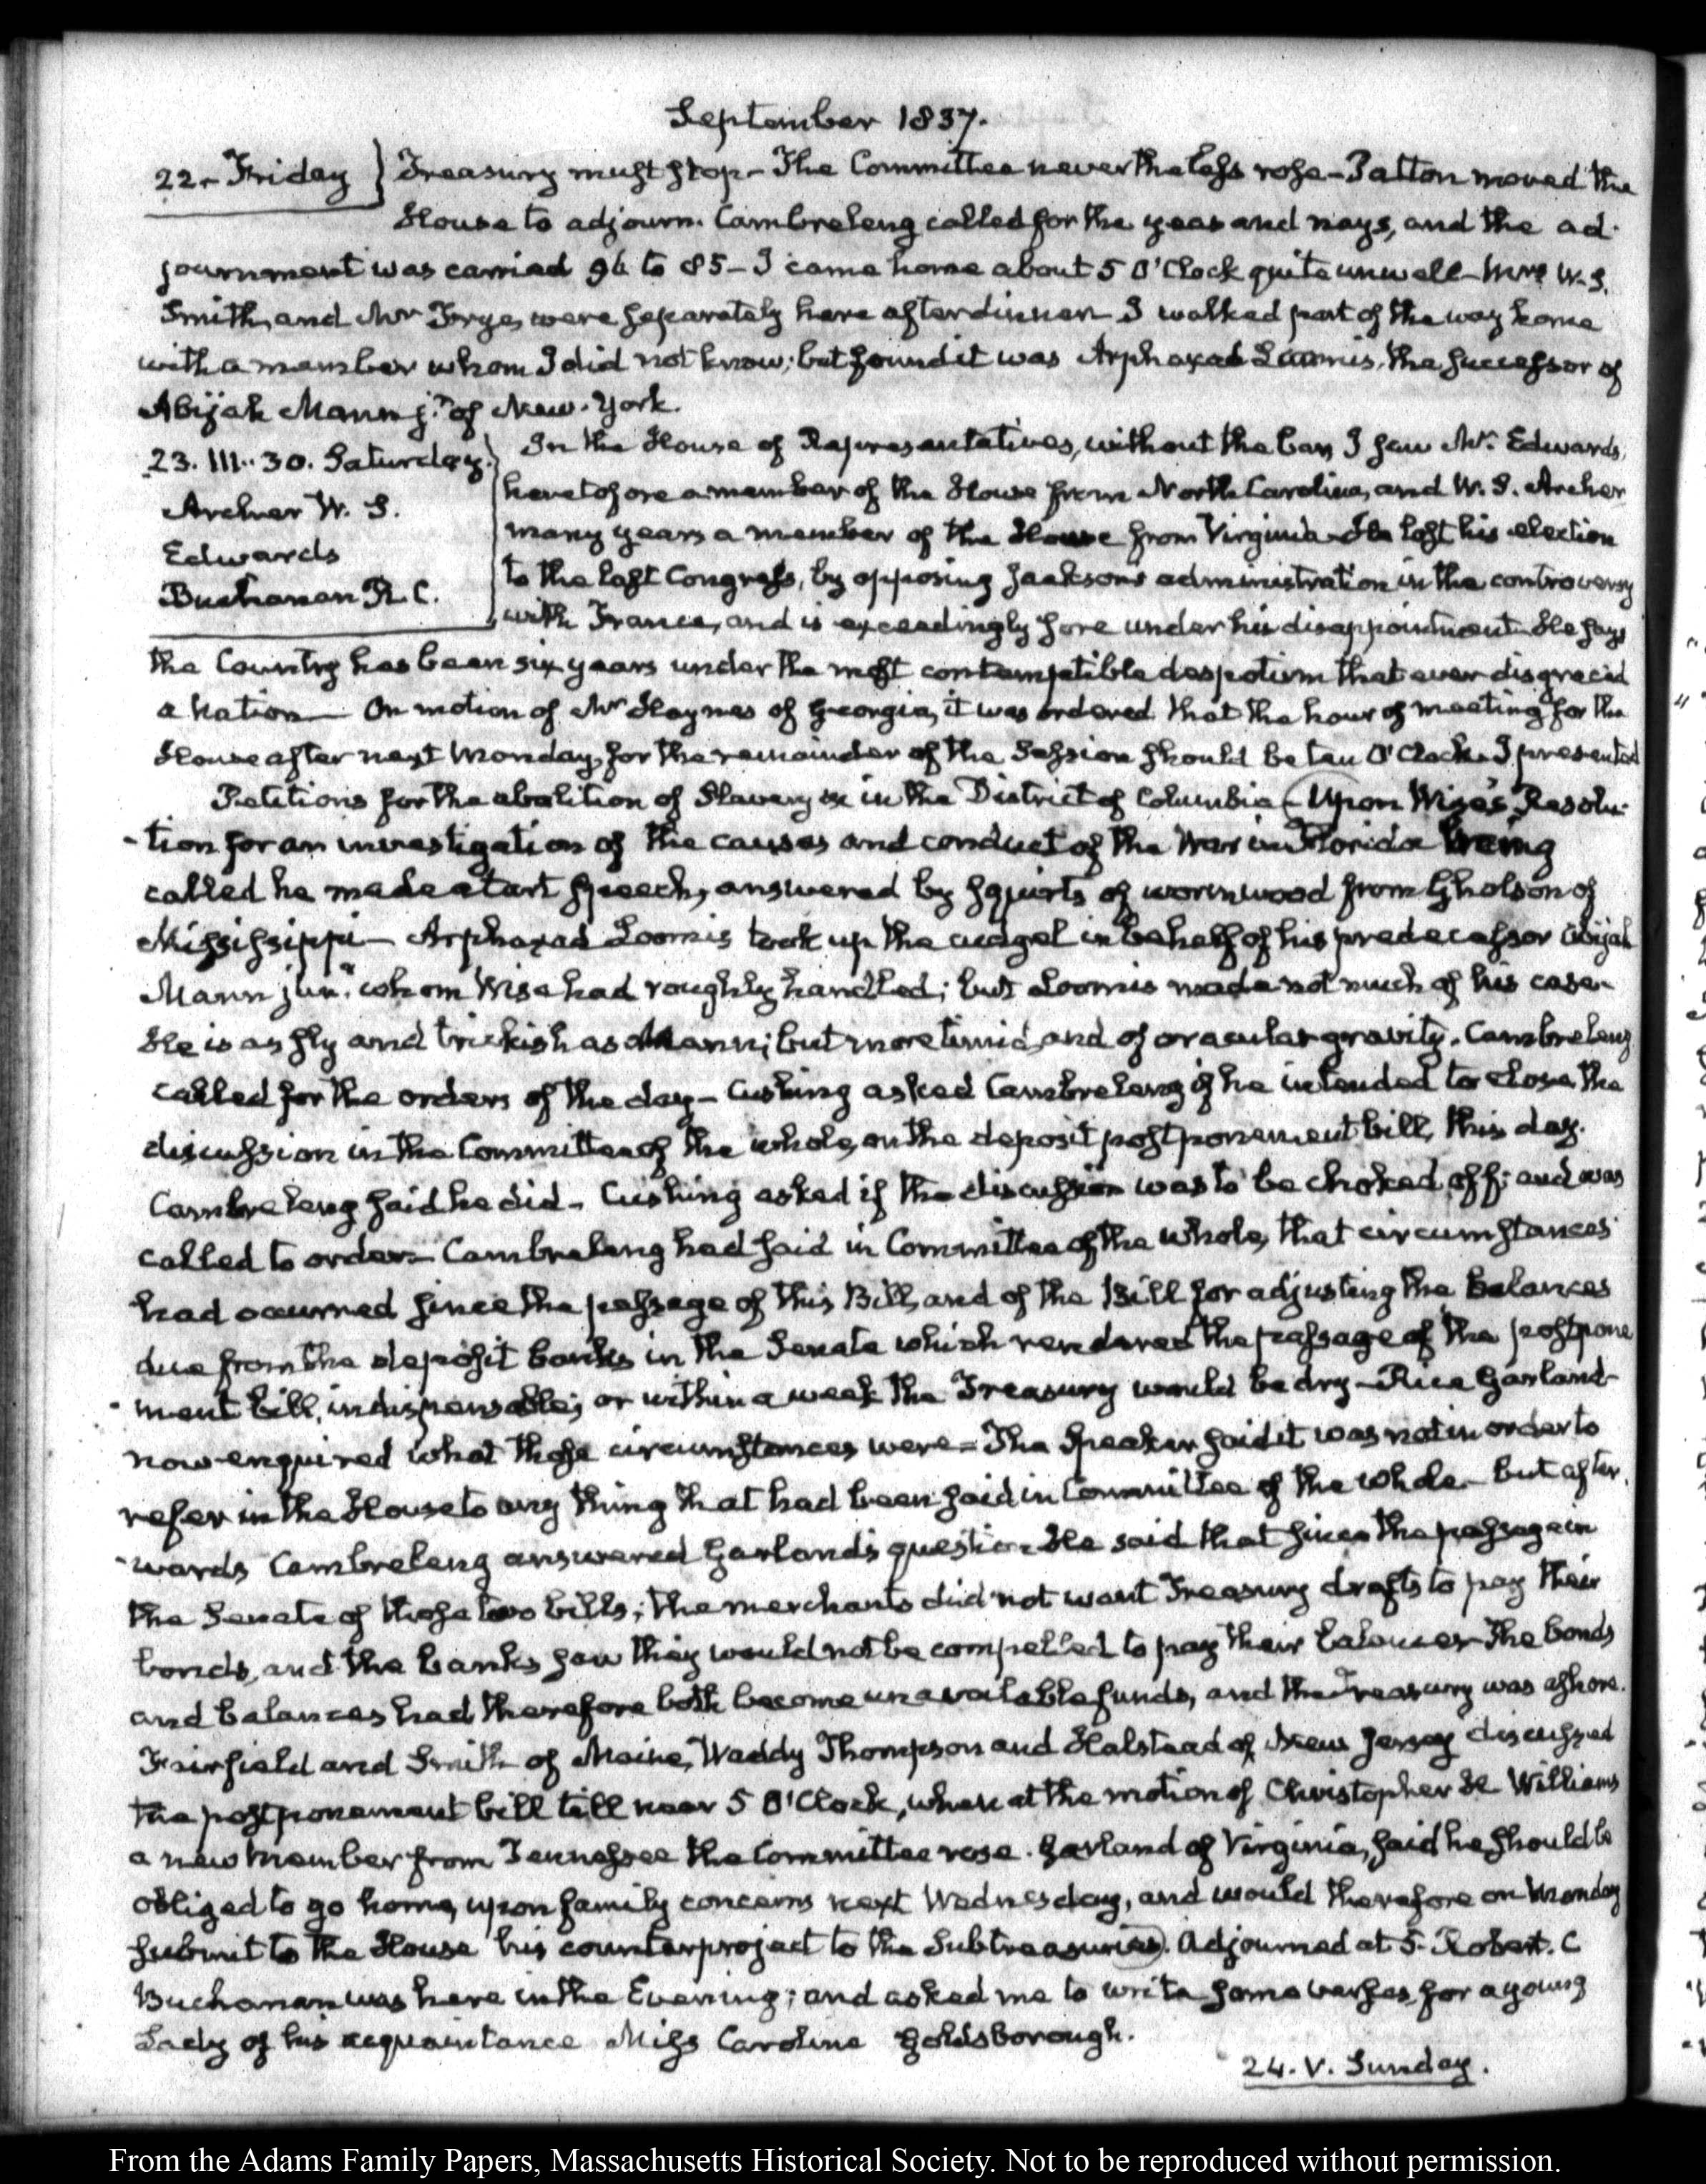 September 1837.
22. Friday } Treasury must stop— The Committee nevertheless rose— Patton moved the
House to adjourn. Cambreleng called for the yeas and nays, and the ad-
journment was carried 96 to 85— I came home about 5 O'Clock quite unwell— Mrs W. S.
Smith, and Mr Frye, were separately here after dinner I walked part of the way home
with a member whom I did not know; but found it was Arphaxad Loomis, the successor of
Abijah Mann jr. of New-York.
23. III..30. Saturday.
Archer W. S.
Edwards
Buchanan R. C.
In the House of Representatives, without the bar, I saw Mr. Edwards,
heretofore a member of the House from North Carolina, and W. S. Archer
many years a member of the House from Virginia— He lost his election
to the last Congress, by opposing Jackson's administration in the controversy
with France, and is exceedingly sore under his disappointment— He says
the Country has been six years under the most contemptible despotism that ever disgraced
a Nation— On motion of Mr Haynes of Georgia, it was ordered that the hour of meeting for the
House after next Monday, for the remainder of the Session should be ten O'Clock. I presented
Petitions for the abolition of Slavery &c in the District of Columbia (Upon Wise's Resolu-
-tion for an investigation of the causes and conduct of the War in Florida being
called he made a tart speech, answered by squirts of wormwood from Gholson of
Mississippi— Arphaxad Loomis took up the cudgel in behalf of his predecessor Abijah
Mann junr. whom Wise had roughly handled; but Loomis made not much of his case—
He is as sly and trickish as Mann; but more timid, and of oracular gravity. Cambreleng
called for the orders of the day— Cushing asked Cambreleng if he intended to close the
discussion in the Committee of the whole, on the deposit postponement bill, this day.
Cambreleng said he did— Cushing asked if the discussion was to be choked off; and was
called to order— Cambreleng had said in Committee of the whole, that circumstances
had occurred since the passage of this Bill, and of the Bill for adjusting the balances
due from the deposit banks in the Senate which rendered the passage of the postpone
-ment bill, indispensable; or within a week the Treasury would be dry— Rice Garland
now enquired what those circumstances were— The Speaker said it was not in order to
refer in the House to any thing that had been said in Committee of the whole— but after
-wards Cambreleng answered Garland's question— He said that since the passage in
the Senate of those two bills; the merchants did not want Treasury drafts to pay their
bonds, and the banks saw they would not be compelled to pay their balances— The bonds
and balances had therefore both become unavailable funds, and the Treasury was ashore.
Fairfield and Smith of Maine, Waddy Thompson and Halstead of New Jersey discussed
the postponement bill till near 5 O'Clock, when at the motion of Christopher H Williams
a new member from Tennessee the Committee rose. Garland of Virginia, said he should be
obliged to go home, upon family concerns next Wednesday, and would therefore on Monday
submit to the House his counterproject to the Subtreasuries). Adjourned at 5. Robert. C
Buchanan was here in the Evening; and asked me to write some verses for a young
Lady of his acquaintance Miss Caroline Goldsborough.
24. V. Sunday.
From the Adams Family Papers, Massachusetts Historical Society. Not to be reproduced without permission.